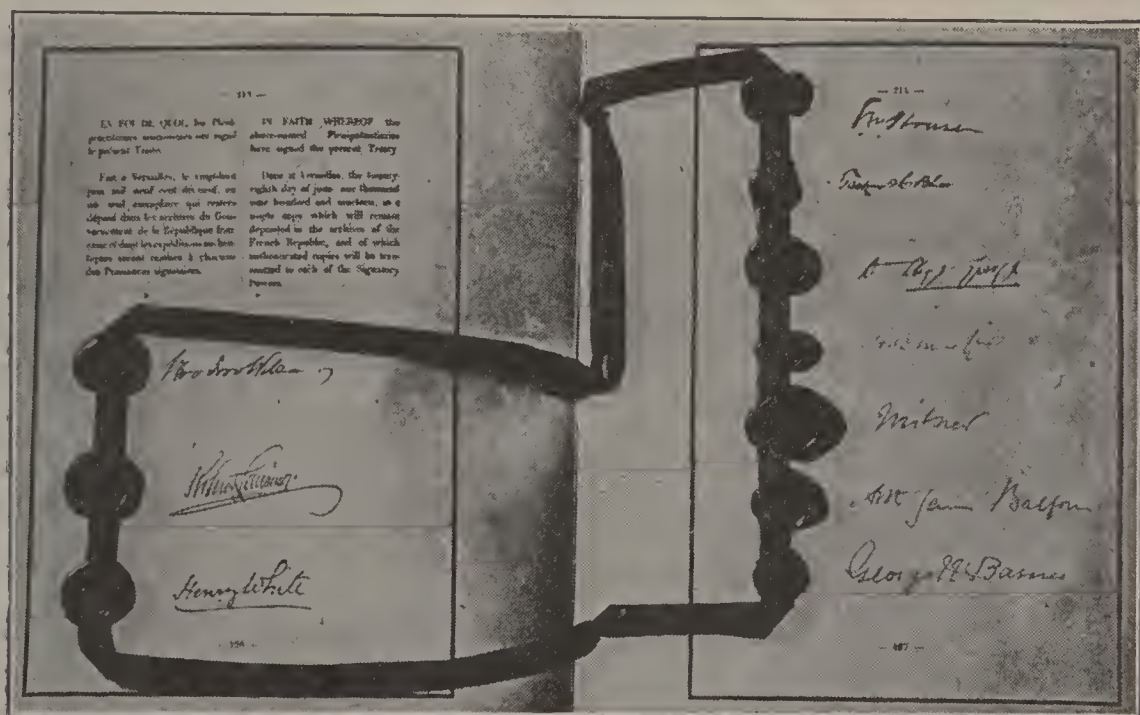 EN FOI DE QUOI, les Pléni-
potentiaires susnommés ont signé
le présent Traité.
Fait à Versailles, le vingt-huit
juin mil neuf cent dix-neuf, en
un seul exemplaire qui restera
déposé dans les archives du Gou-
vernement de la République fran-
çaise et dont les expéditions authen-
tiques seront remises à chacune
des Puissances signataires.
IN FAITH WHEREOF the
above-named Plenipotentiaries
have signed the present Treaty.
Done at Versailles, the twenty-
eighth day of June, one thousand
nine hundred and nineteen, in a
single copy which will remain
deposited in the archives of the
French Republic, and of which
authenticated copies will be trans-
mitted to each of the Signatory
Powers.
Woodrow Wilson
Robert Lansing
Henry White
House
Tasker H. Bliss
D Lloyd George
Milner
Arthur James Balfour
George N Barnes